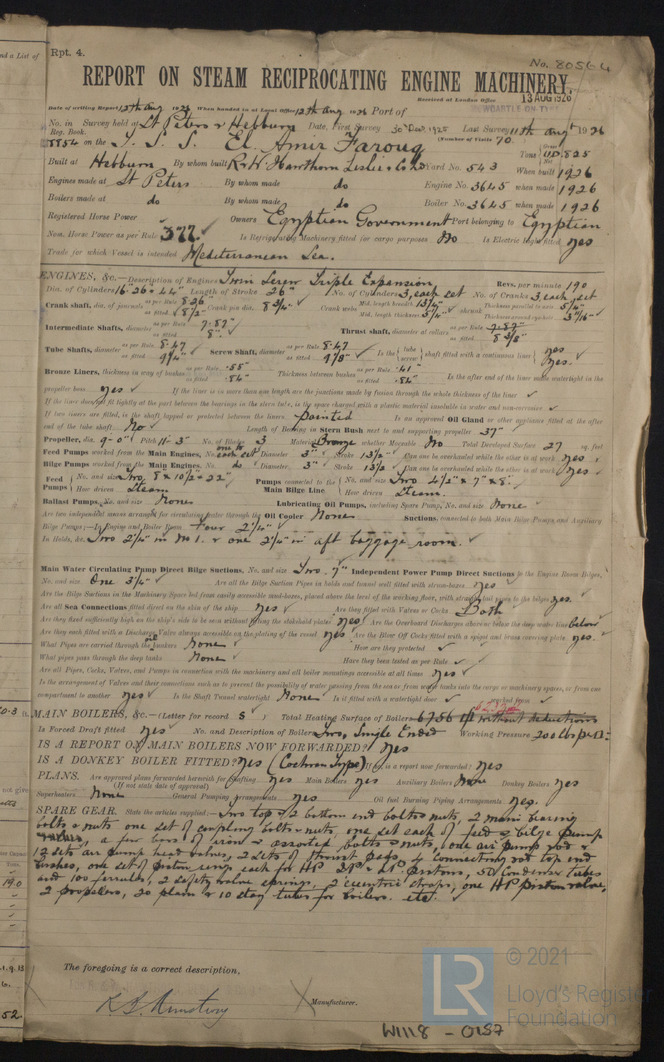 nd a List of
Rpt. 4.
No. 80564
REPORT ON STEAM RECIPROCATING ENGINE MACHINERY.
Received at London Office 13 AUG 1926
NEWCASTLE-ON-TYNE
Date of writing Report 12th Aug 1926 When handed in at Local Office 12th Aug 1926 Port of
No. in Survey held at St Peters & Hebburn Date, First Survey 30th Dec. 1925 Last Survey 11th Augt 1926
Reg. Book. (Number of Visits 70
on the T.S.S. El Amir Farouq Tons
Built at Hebburn By whom built R & W Hawthorn Leslie & Co Ld Yard No. 543 When built 1926
Engines made at St Peters By whom made do Engine No. 3645 when made 1926
Boilers made at do By whom made do Boiler No. 3645 when made 1926
Registered Horse Power Owners Egyptian Government Port belonging to Egyptian
Nom. Horse Power as per Rule 377 Is Refrigerating Machinery fitted for cargo purposes No Is Electric Light fitted yes
Trade for which Vessel is intended Mediterranean Sea.
ENGINES, &c.—Description of Engines Twin Screw Triple Expansion Revs. per minute 190
Dia. of Cylinders 16" 26" & 44" Length of Stroke 26" No. of Cylinders 3, each set No. of Cranks 3 each set
Crank shaft, dia. of journals as per Rule 8.26" as fitted 8 1/2" Crank pin dia. 8 3/4" Crank webs Mid. length breadth 13 1/4" Mid. length thickness 5 1/4" shrunk Thickness parallel to axis 5 1/4" Thickness around eye-hole 3 9/16"
Intermediate Shafts, diameter as per Rule 7.87" as fitted 8" Thrust shaft, diameter at collars as per Rule 7.87" as fitted 8 3/8"
Tube Shafts, diameter as per Rule 8.47 as fitted 9 1/4" Screw Shaft, diameter as per Rule 8.47 as fitted 9 1/8" Is the tube screw shaft fitted with a continuous liner yes yes.
Bronze Liners, thickness in way of bushes as per Rule .55" as fitted .84" Thickness between bushes as per Rule .41" as fitted .84" Is the after end of the liner made watertight in the
propeller boss yes If the liner is in more than one length are the junctions made by fusion through the whole thickness of the liner
If the liner does not fit tightly at the part between the bearings in the stern tube, is the space charged with a plastic material insoluble in water and non-corrosive
If two liners are fitted, is the shaft lapped or protected between the liners painted Is an approved Oil Gland or other appliance fitted at the after
end of the tube shaft No Length of Bearing in Stern Bush next to and supporting propeller 37"
Propeller, dia. 9-0" Pitch 11-3" No. of Blades 3 Material Bronze whether Moveable No Total Developed Surface 27 sq. feet
Feed Pumps worked from the Main Engines, No. one to each set Diameter 3" Stroke 13 1/2" Can one be overhauled while the other is at work yes
Bilge Pumps worked from the Main Engines, No. do Diameter 3" Stroke 13 1/2 Can one be overhauled while the other is at work yes
Feed Pumps No. and size Two 8" x 10 1/2" x 22" How driven Steam Pumps connected to the Main Bilge Line No. and size Two 4 1/2" x 7" x 8" How driven Steam.
Ballast Pumps, No. and size None Lubricating Oil Pumps, including Spare Pump, No. and size None.
Are two independent means arranged for circulating water through the Oil Cooler None Suctions, connected to both Main Bilge Pumps and Auxiliary
Bilge Pumps;—In Engine and Boiler Room Four 2 1/4"
In Holds, &c. Two 2 1/4" in No 1. & one 2 1/4" in aft baggage room.
Main Water Circulating Pump Direct Bilge Suctions, No. and size Two. 7" Independent Power Pump Direct Suctions to the Engine Room Bilges,
No. and size One 3 1/4" Are all the Bilge Suction Pipes in holds and tunnel well fitted with strum-boxes yes
Are the Bilge Suctions in the Machinery Space led from easily accessible mud-boxes, placed above the level of the working floor, with straight tail pipes to the bilges yes.
Are all Sea Connections fitted direct on the skin of the ship yes Are they fitted with Valves or Cocks Both
Are they fixed sufficiently high on the ship's side to be seen without lifting the stokehold plates yes Are the Overboard Discharges above or below the deep water line below
Are they each fitted with a Discharge Valve always accessible on the plating of the vessel yes Are the Blow Off Cocks fitted with a spigot and brass covering plate yes.
What Pipes are carried through the bunkers None How are they protected
What pipes pass through the deep tanks None Have they been tested as per Rule
Are all Pipes, Cocks, Valves, and Pumps in connection with the machinery and all boiler mountings accessible at all times yes
Is the arrangement of Valves and their connections such as to prevent the possibility of water passing from the sea or from water tanks into the cargo or machinery spaces, or from one
compartment to another yes Is the Shaft Tunnel watertight None Is it fitted with a watertight door worked from
MAIN BOILERS, &c.—(Letter for record S) Total Heating Surface of Boilers 6756 without deductions
Is Forced Draft fitted yes No. and Description of Boilers Two, Single Ended Working Pressure 200 lbs per
IS A REPORT ON MAIN BOILERS NOW FORWARDED? yes
IS A DONKEY BOILER FITTED? yes (Cochran Type) If so, is a report now forwarded? yes
PLANS. Are approved plans forwarded herewith for Shafting yes Main Boilers yes Auxiliary Boilers None Donkey Boilers yes
(If not state date of approval)
Superheaters None General Pumping Arrangements yes Oil fuel Burning Piping Arrangements yes.
SPARE GEAR. State the articles supplied:— Two top & 2 bottom end bolts & nuts, 2 main bearing
bolts & nuts one set of coupling bolts & nuts, one set each of feed & bilge pump
valves, a few bars of iron & assorted bolts & nuts, one air pump rod &
12 sets air pump head valves, 2 sets of thrust pads, 4 connecting rod top end
bushes, one set of piston rings each for HP IP & LP. pistons, 50 condenser tubes
and 100 ferrules, 2 safety valve springs, 2 eccentric straps, one HP piston valve,
2 propellers, 20 plain & 10 stay tubes for boilers. etc.
The foregoing is a correct description,
Manufacturer.
W1118 - 0187
© 2021
LR
Lloyd's Register
Foundation